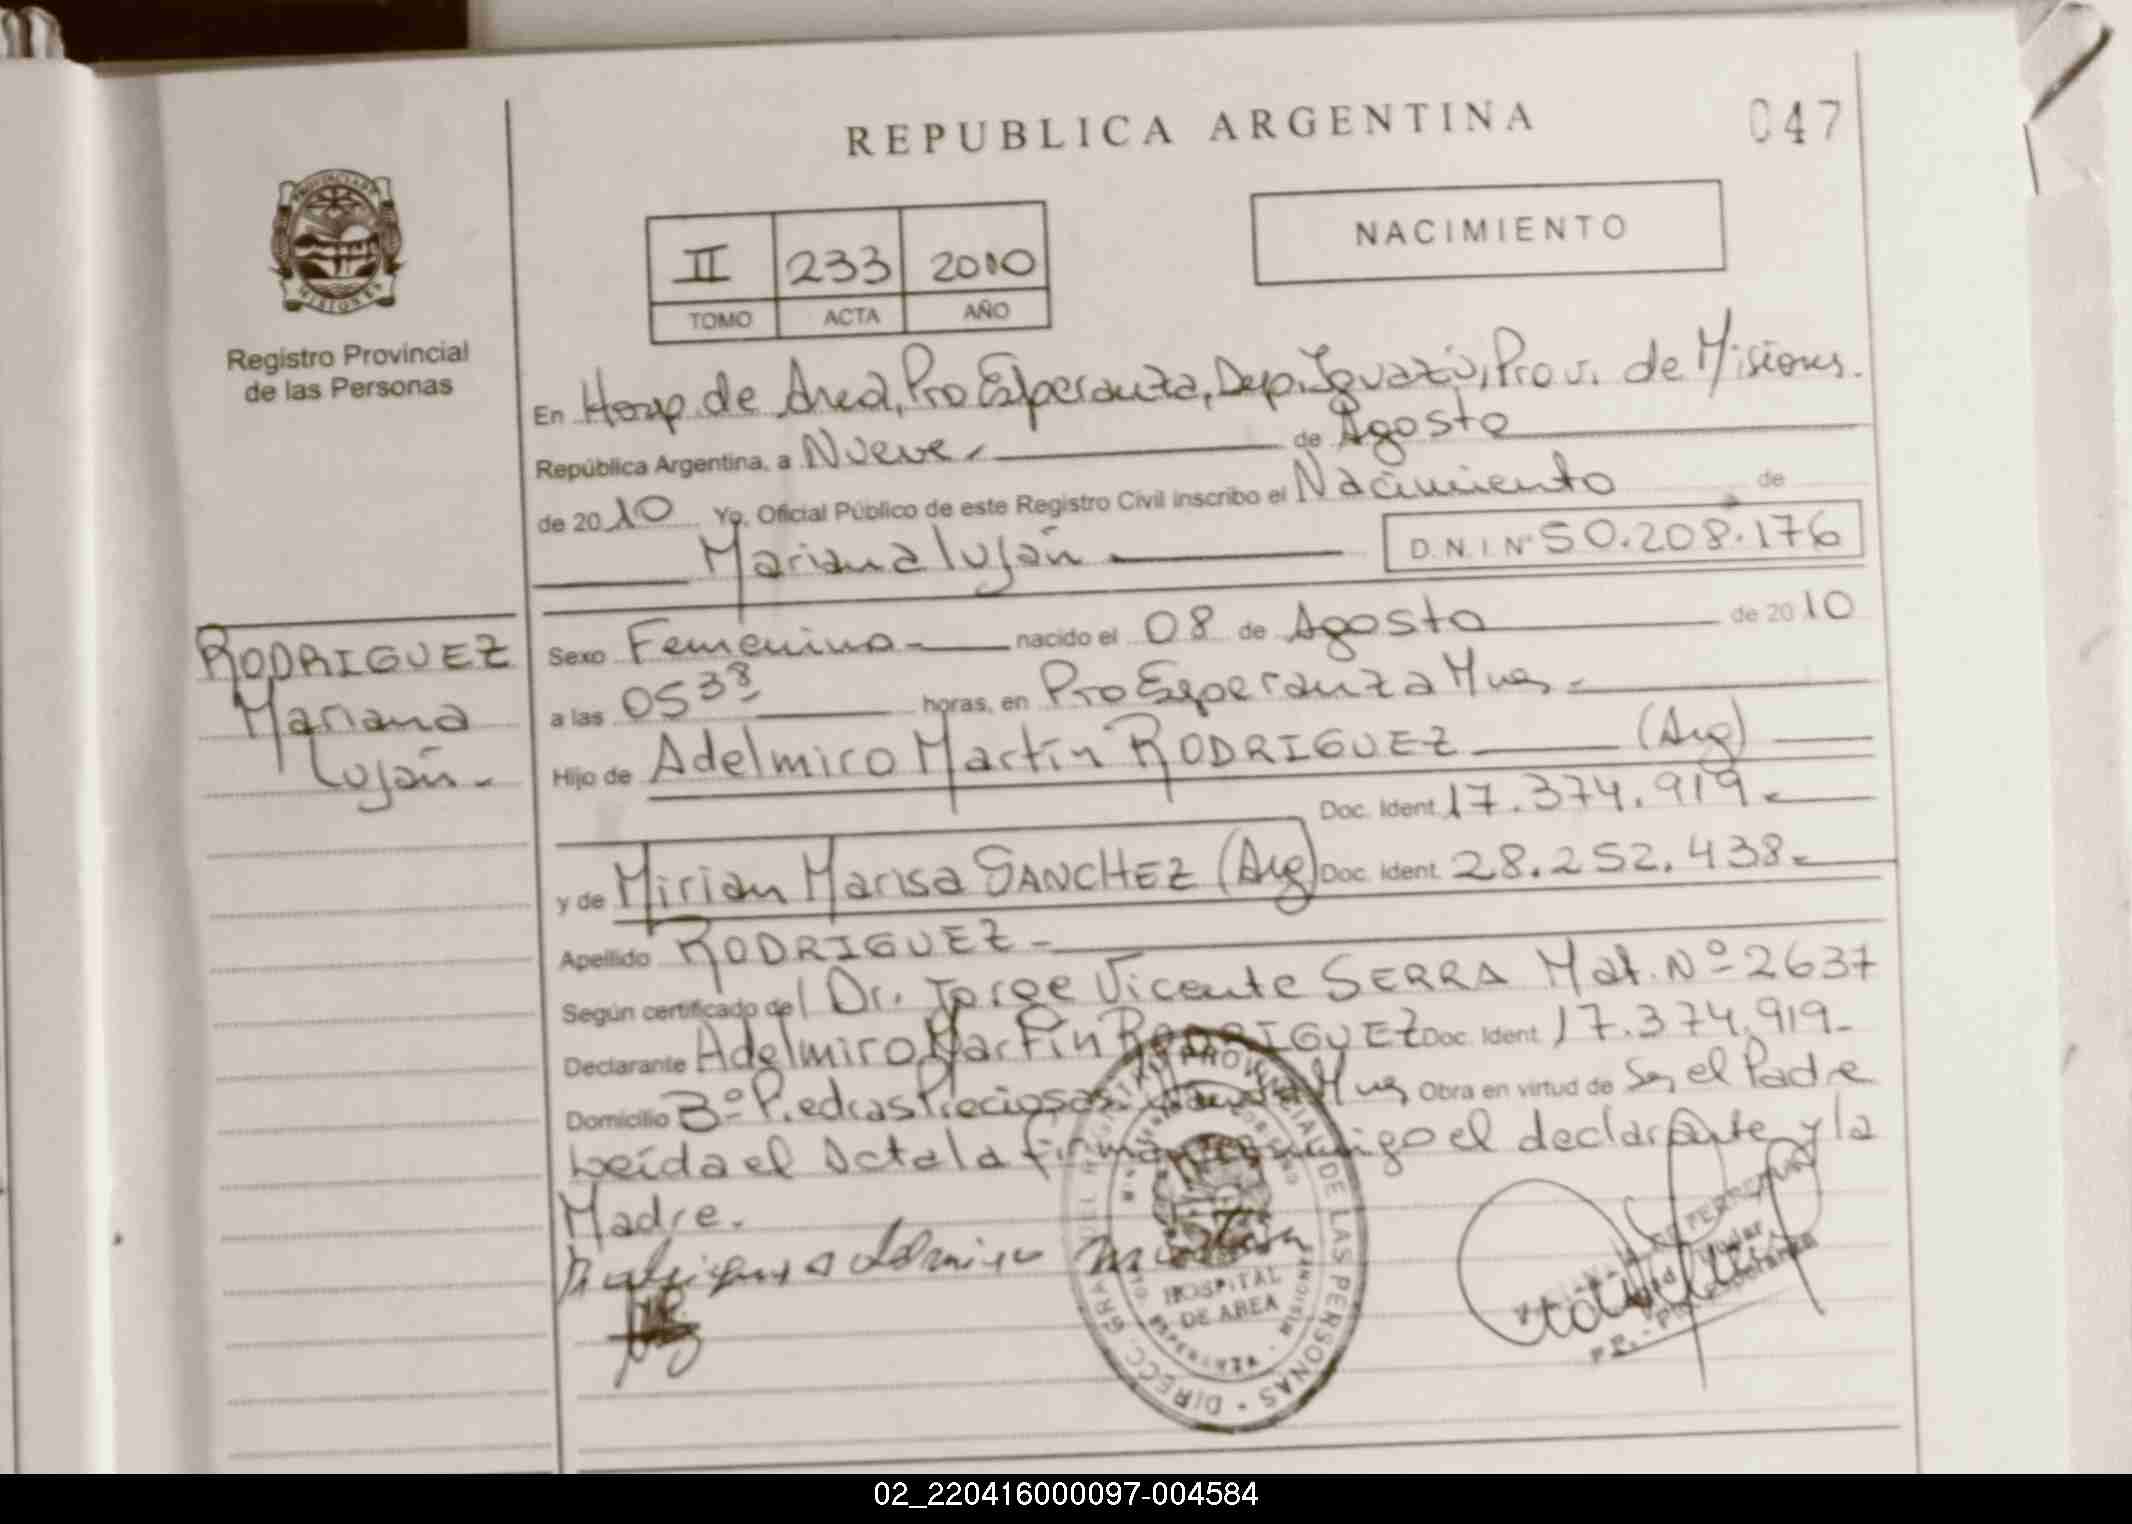 REPUBLICA ARGENTINA
047
PROVINCIA DE
MISIONES
Registro Provincial
de las Personas
II 233 2010
TOMO ACTA AÑO
NACIMIENTO
En Hosp. de Area, Pto Esperanza, Dep. Iguazú, Prov. de Misiones.
República Argentina, a Nueve de Agosto
de 2010 Yo, Oficial Público de este Registro Civil inscribo el Nacimiento de
Mariana Luján D.N.I. Nº 50.208.176
RODRIGUEZ
Mariana
Luján.-
Sexo Femenino.- nacido el 08 de Agosto de 2010
a las 05 38 horas, en Pto Esperanza Mnes.-
Hijo de Adelmiro Martín RODRIGUEZ (Arg)
Doc. Ident. 17.374.919.-
y de Mirian Marisa SANCHEZ (Arg) Doc. Ident. 28.252.438.-
Apellido RODRIGUEZ.-
Según certificado del Dr. Jorge Vicente SERRA Mat. Nº 2637
Declarante Adelmiro Martín RODRIGUEZ Doc. Ident. 17.374.919-
Domicilio Bº Piedras Preciosas Mnes Obra en virtud de Ser el Padre
Leída el Acta la firman conmigo el declarante y la
Madre.
DIRECC. GRAL. DEL REGISTRO PROVINCIAL DE LAS PERSONAS
HOSPITAL
DE AREA
02_220416000097-004584